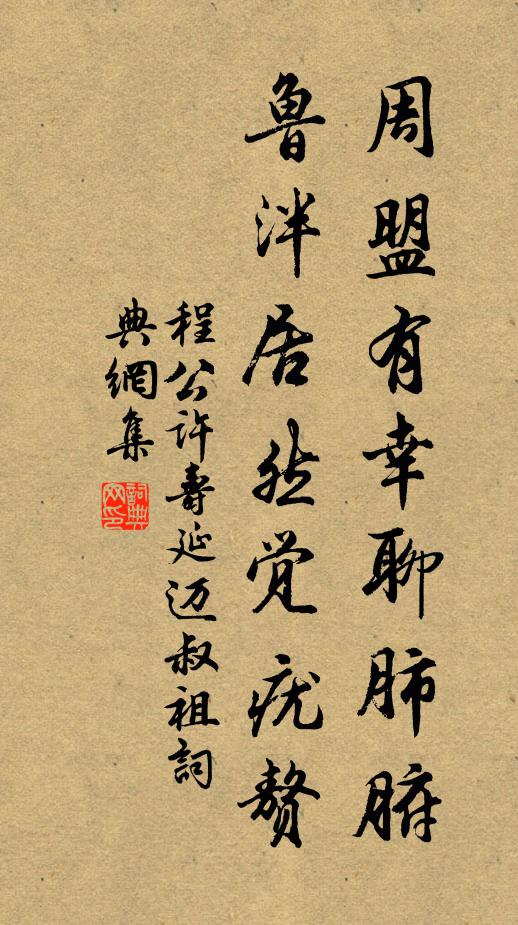 周盟有幸聊肺腑
魯泮居然觉疣赘
程公许壽延迈叔祖詞
典網集
詞典
网印